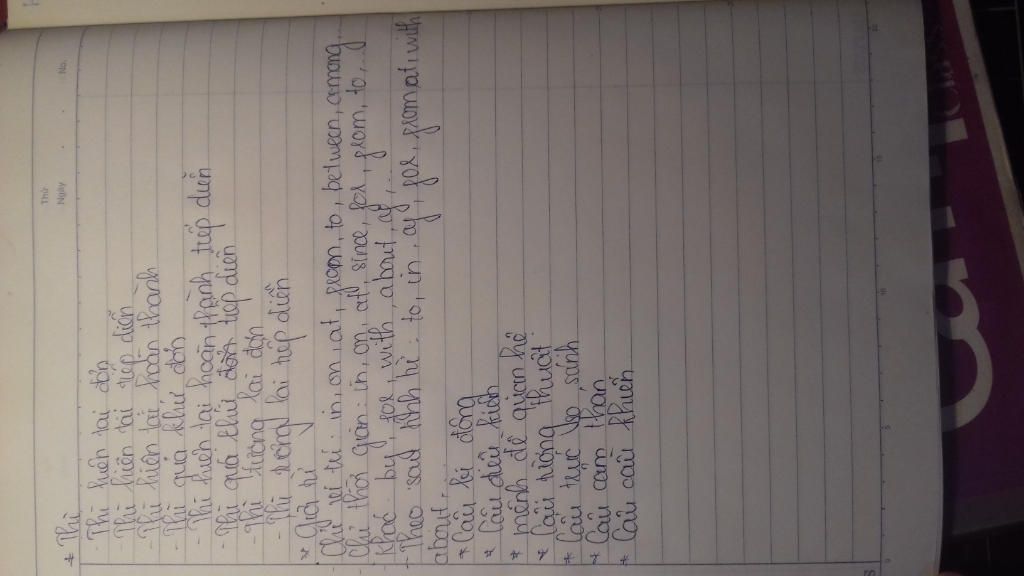 Thứ
Ngày
No.
* Thì
- Thì hiện tại đơn
- Thì hiện tại tiếp diễn
- Thì hiện tại hoàn thành
- Thì quá khứ đơn
- Thì hiện tại hoàn thành tiếp diễn
- Thì quá khứ đơn tiếp diễn
- Thì tương lai đơn
- Thì tương lai tiếp diễn
* Giới từ
- Chỉ vị trí: in, on, at, from, to, between, among...
- Chỉ thời gian: in, on, at, since, for, from, to,...
- Khác: by, for, with, about, of,...
- Theo sau tính từ: to, in, of, for, from, at, with
about,...
* Câu bị động
* Câu điều kiện
* mệnh đề quan hệ
* Câu tường thuật
* Cấu trúc so sánh
* Câu cảm thán
* Câu cầu khiến